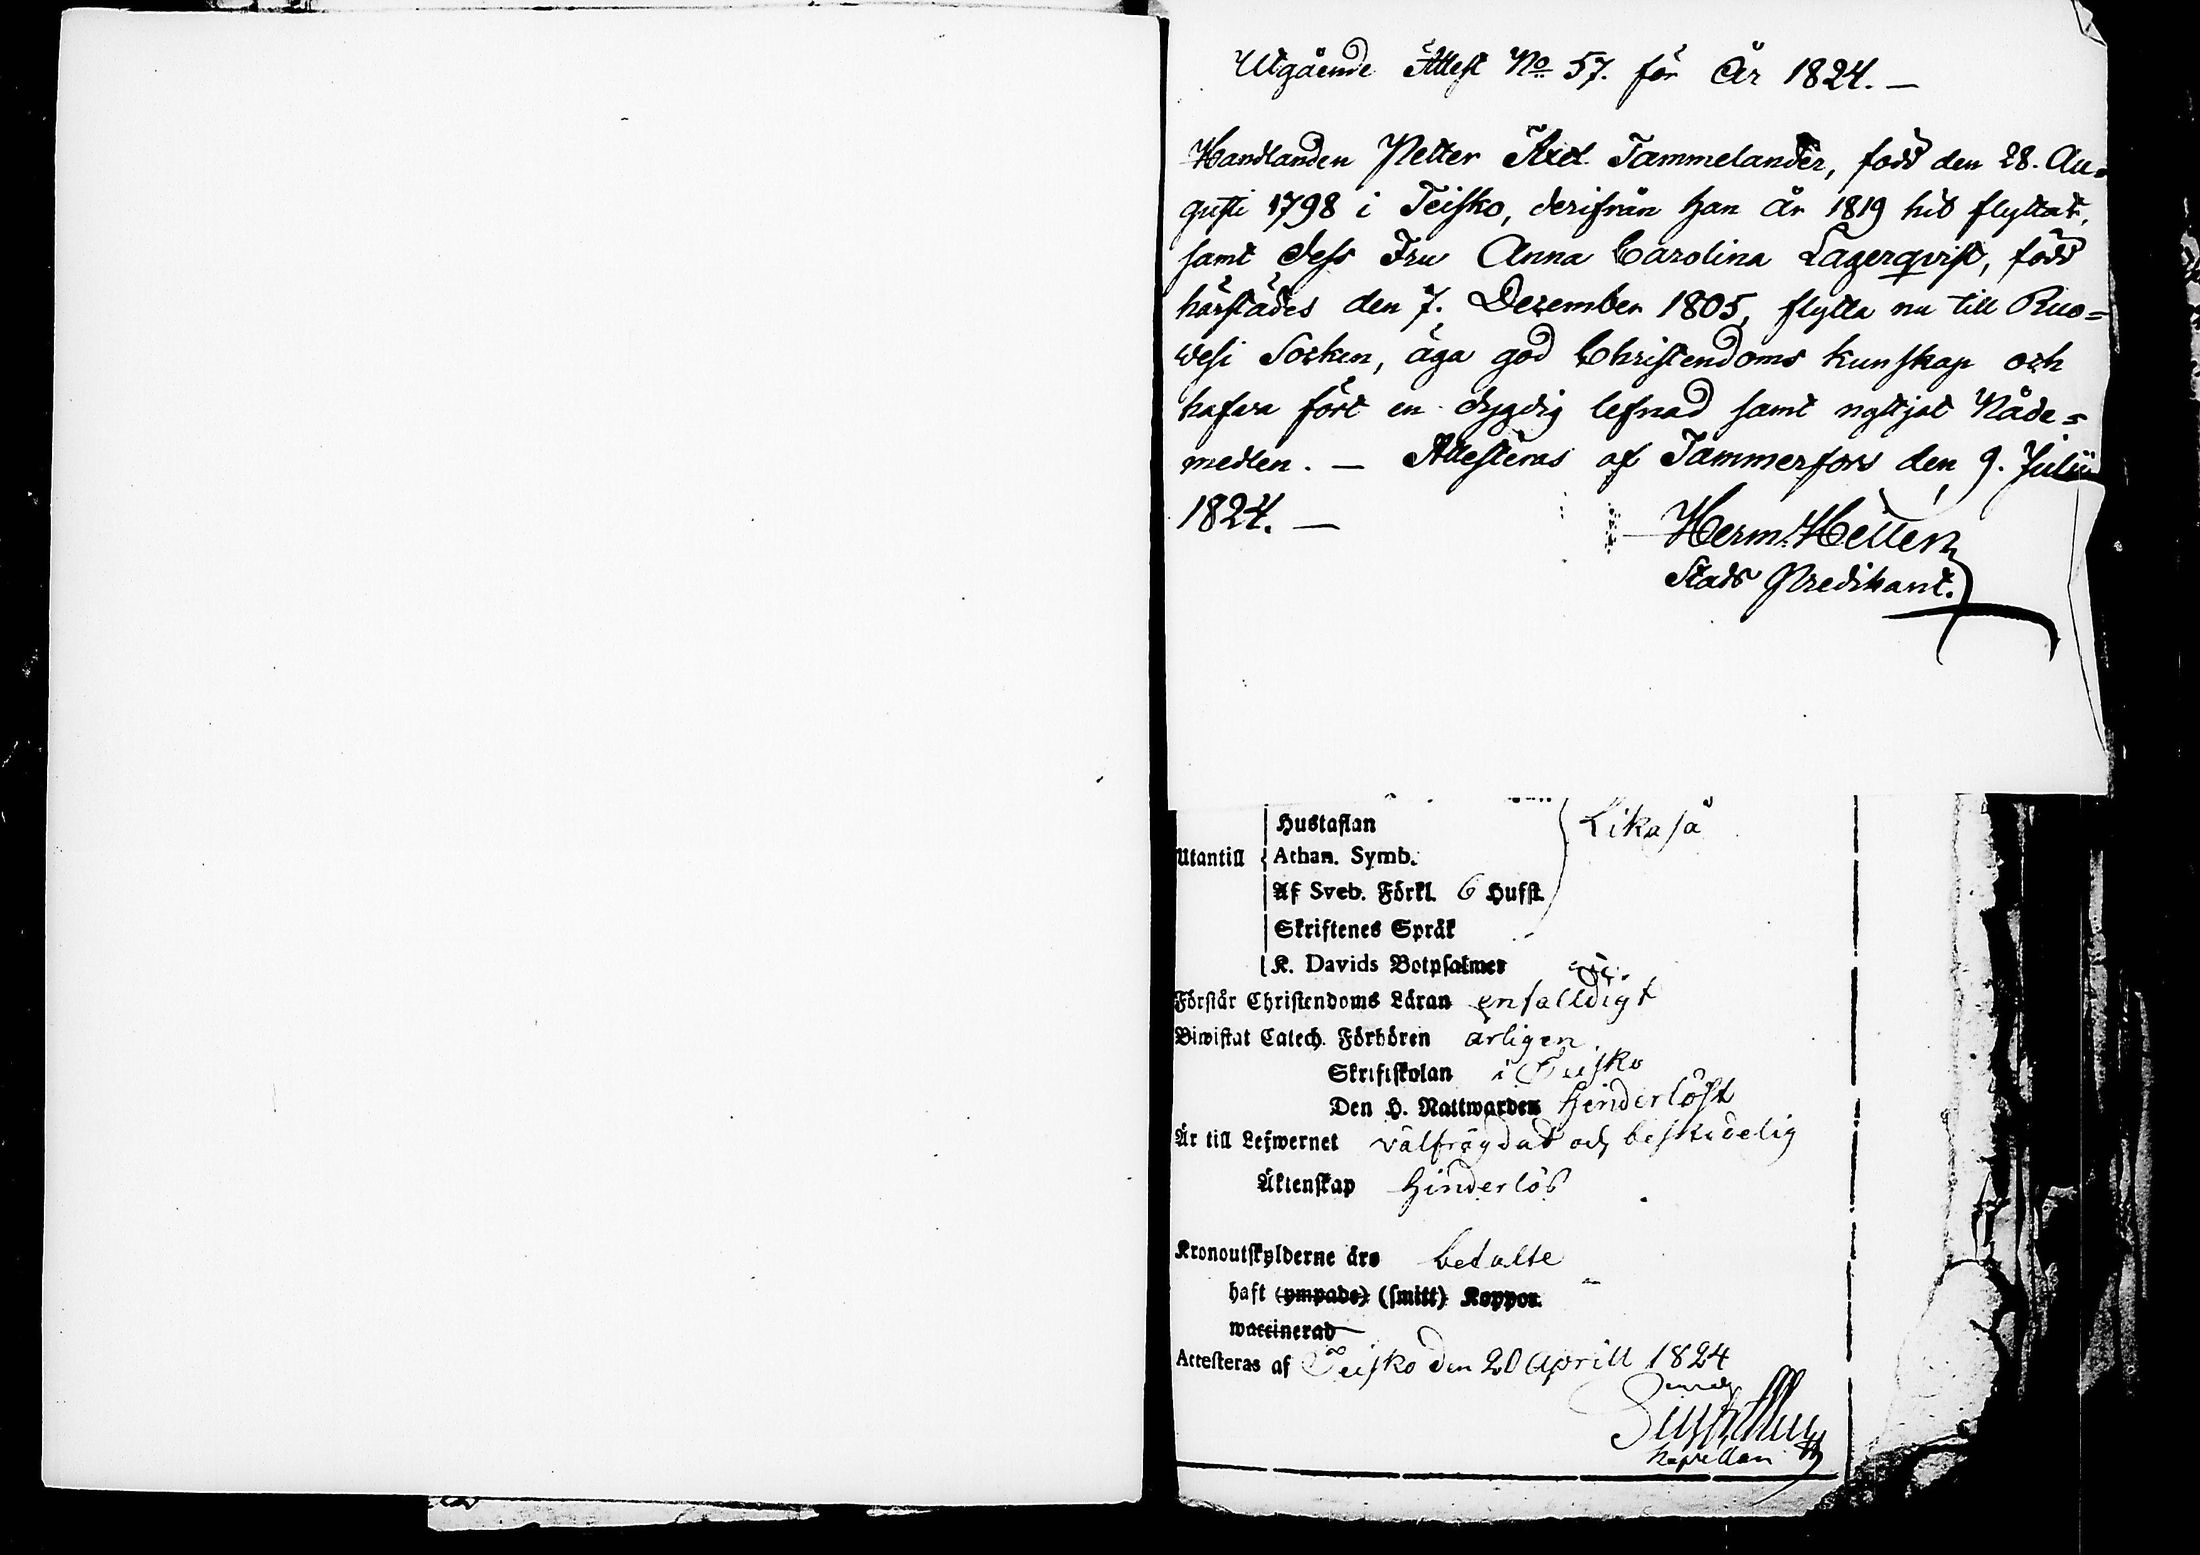 Utgående Attest No 57. för År 1824. —
Handlanden Petter Axel Tammelander, född den 28. Au=
gusti 1798 i Teisko, derifrån han år 1819 hit flyttat,
samt dess Fru Anna Carolina Lagerqvist, född
härstädes den 7. December 1805, flytta nu till Ruo=
wesi Socken, äga god Christendoms kunskap och
hafwa fört en dygdig lefnad samt nyttjat Nåde=
medlen. — Attesteras af Tammerfors den 9. Julii
1824. —
Herm. Hellén
Stads Predikant.
Hustaflan
Likaså
Utantill Athan. Symb.
Af Sveb. Förkl. 6 Hufst.
Skriftenes Språk
K. Davids Botpsalmer
Förstår Christendoms Läran enfalldigt
Biwistat Catech. Förhören årligen
Skriftskolan i Teisko
Den H. Nattwarden hinderlöst
Är till Lefwernet välfrägdat och beskedelig
Äktenskap hinderlös
Kronoutskylderne äro betalte
haft (ympade) (smitt) Koppor.
waccinerad
Attesteras af Teisko den 20 Aprill 1824
Kapellan